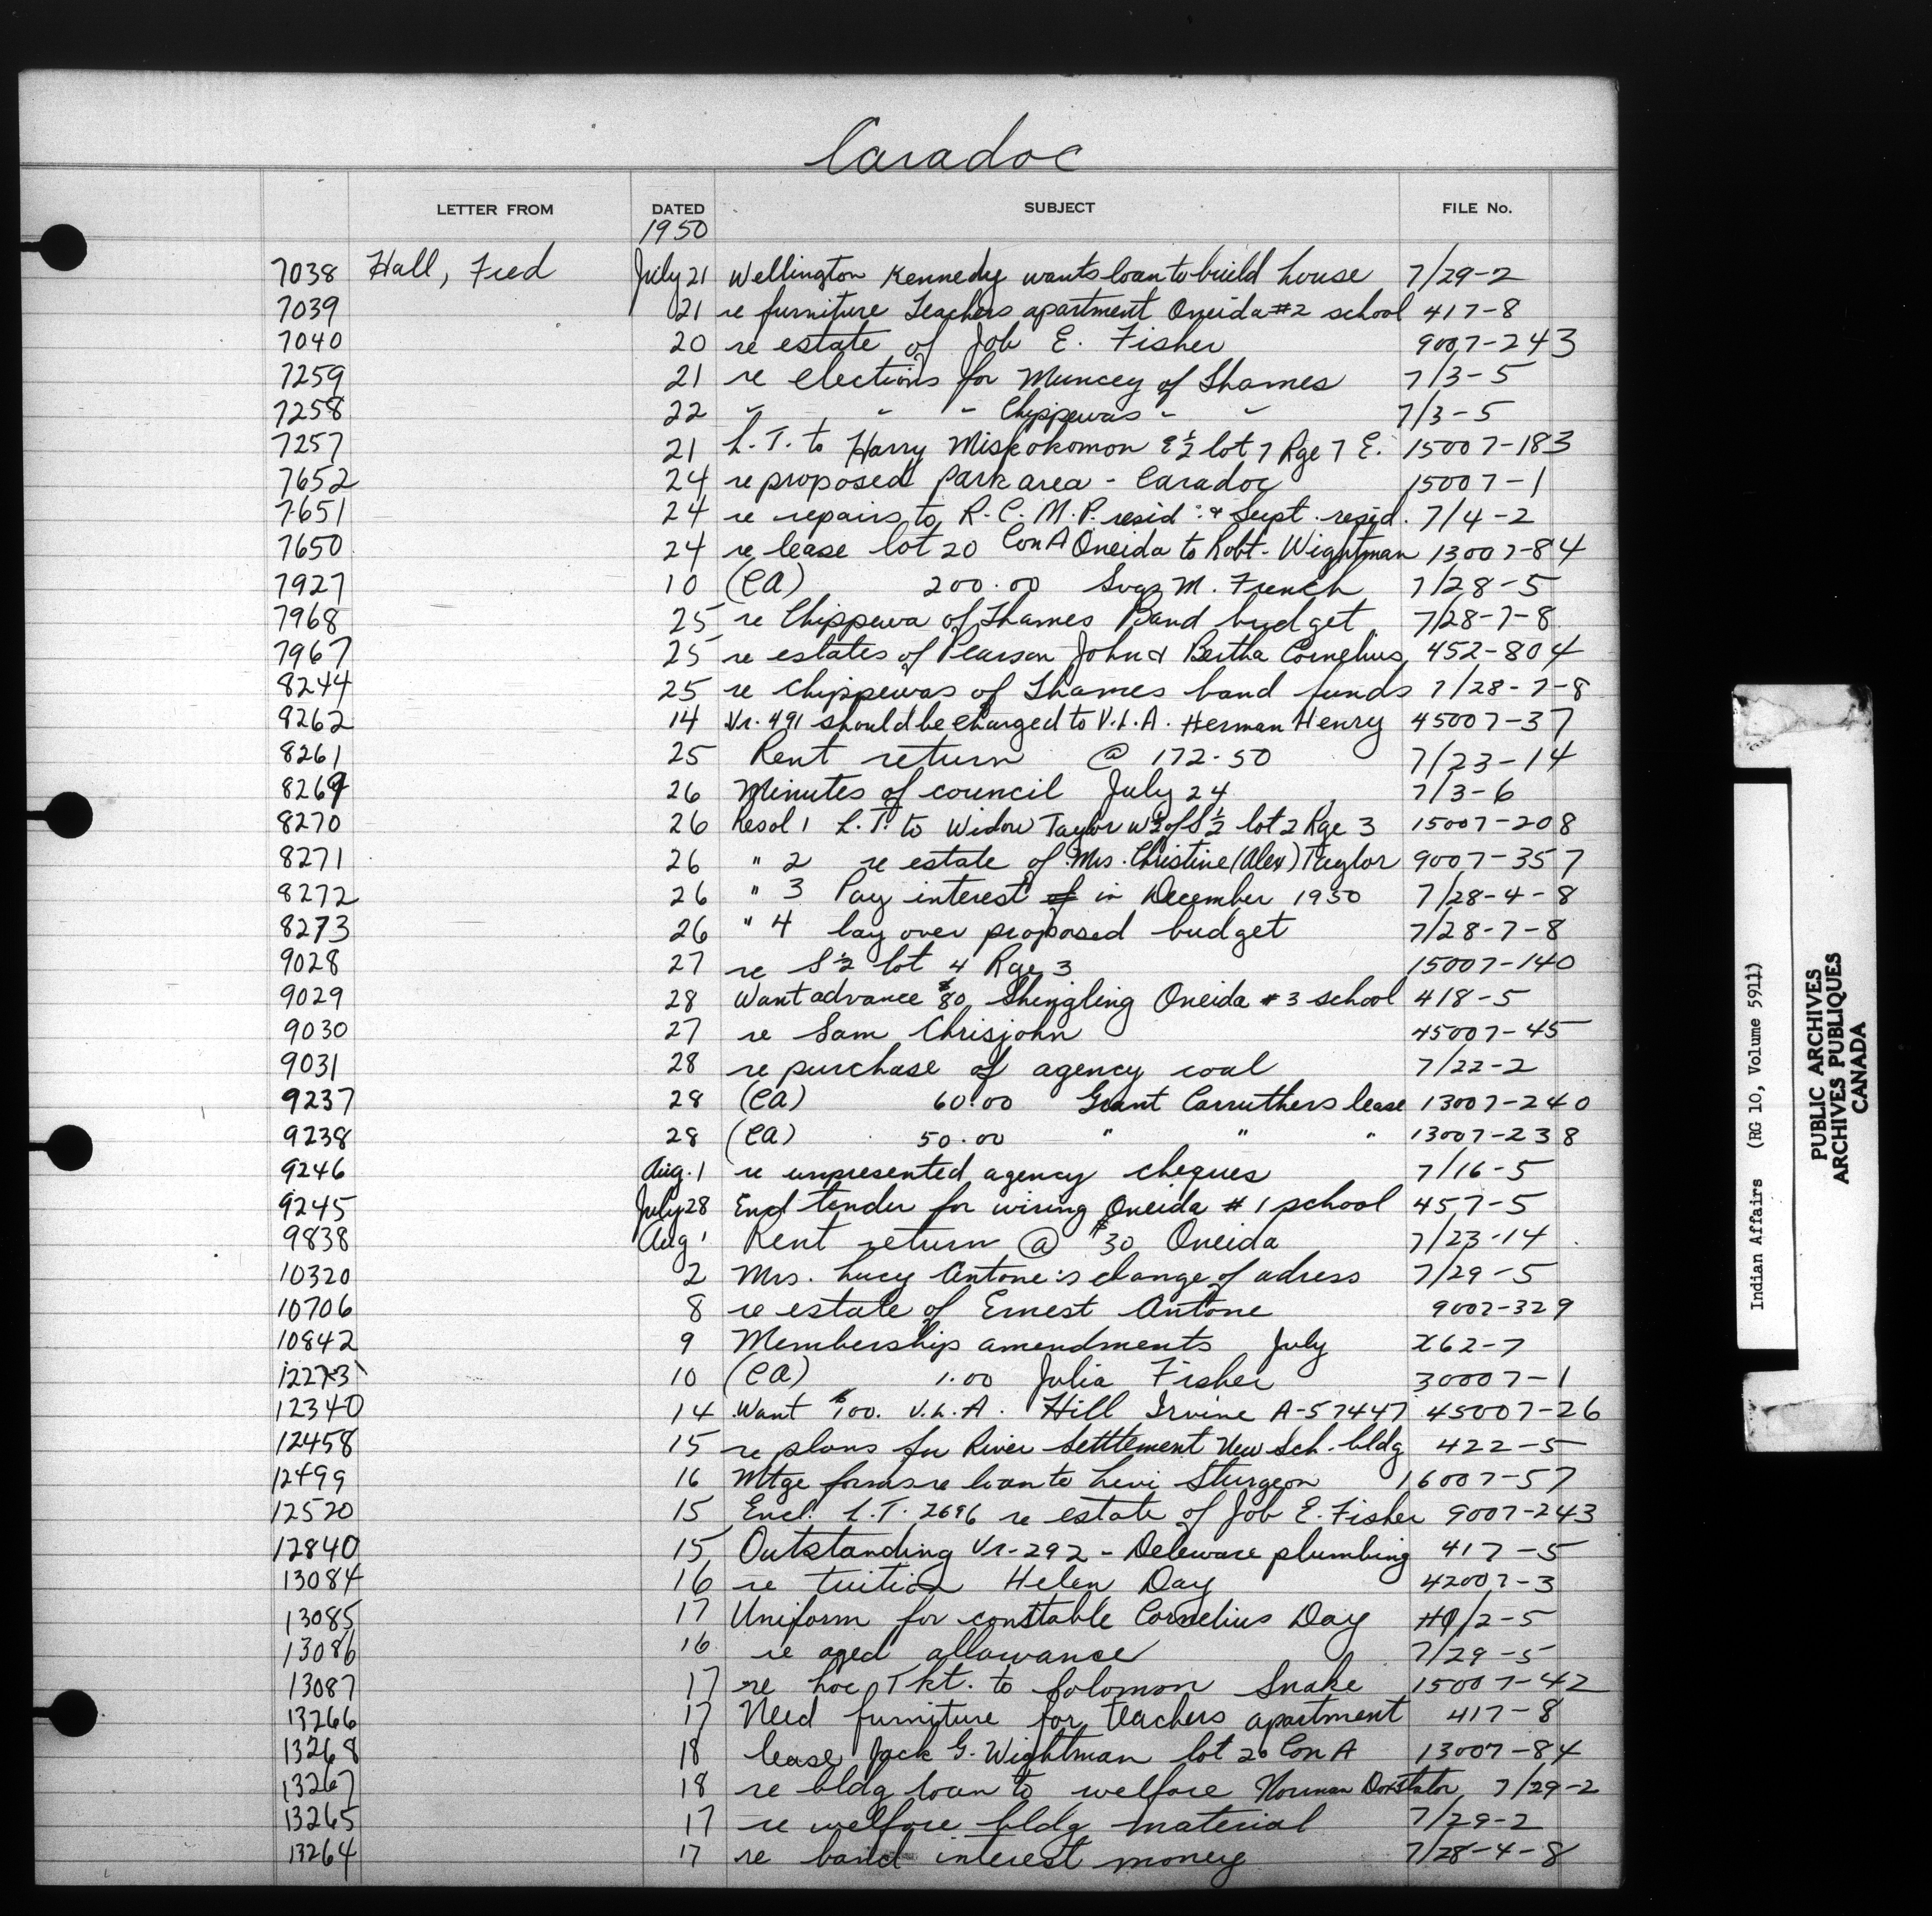 Caradoc
LETTER FROM DATED SUBJECT FILE No.
1950
7038 Hall, Fred July 21 Wellington Kennedy wants loan to build house 7/29-2
7039 21 re furniture Teachers apartment Oneida #2 school 417-8
7040 20 re estate of Job E. Fisher 9007-243
7259 21 re elections for Muncey of Thames 7/3-5
7258 22 " " " Chippewas " " 7/3-5
7257 21 L.T. to Harry Miskokomon E½ lot 7 Rge 7 E. 15007-183
7652 24 re proposed park area - Caradoc 15007-1
7651 24 re repairs to R.C.M.P. resid. & Supt. resid. 7/4-2
7650 24 re lease lot 20 Con A Oneida to Robt. Wightman 13007-84
7927 10 (CA) 200.00 M. French 7/28-5
7968 25 re Chippewa of Thames Band budget 7/28-7-8
7967 25 re estates of Pearson John & Bertha Cornelius 452-804
8244 25 re Chippewas of Thames band funds 7/28-7-8
8262 14 Vr. 491 should be charged to V.L.A. Herman Henry 45007-37
8261 25 Rent return @ 172.50 7/23-14
8269 26 Minutes of council July 24 7/3-6
8270 26 Resol 1 L.T. to Widow Taylor W½ of S½ lot 2 Rge 3 15007-208
8271 26 " 2 re estate of Mrs. Christine (Alex) Taylor 9007-357
8272 26 " 3 Pay interest in December 1950 7/28-4-8
8273 26 " 4 lay over proposed budget 7/28-7-8
9028 27 re S½ lot 4 Rge 3 15007-140
9029 28 Want advance $80 shingling Oneida #3 school 418-5
9030 27 re Sam Chrisjohn 45007-45
9031 28 re purchase of agency coal 7/22-2
9237 28 (CA) 60.00 Grant Carruthers lease 13007-240
9238 28 (CA) 50.00 " " " 13007-238
9246 Aug. 1 re unpresented agency cheques 7/16-5
9245 July 28 Encl tender for wiring Oneida #1 school 457-5
9838 Aug 1 Rent return @ $30 Oneida 7/23-14
10320 2 Mrs. Lucy Antone's change of adress 7/29-5
10706 8 re estate of Ernest Antone 9007-329
10842 9 Membership amendments July X62-7
12273 10 (CA) 1.00 Julia Fisher 30007-1
12340 14 Want $100. V.L.A. Hill Irvine A-57447 45007-26
12458 15 re plans for River Setttement New Sch. bldg 422-5
12499 16 Mtge forms re loan to Levi Sturgeon 16007-57
12520 15 Encl. L.T. 2696 re estate of Job E. Fisher 9007-243
12840 15 Outstanding Vr-292 - Deleware plumbing 417-5
13084 16 re tuition Helen Day 42007-3
13085 17 Uniform for constable Cornelius Day /2-5
13086 16 re aged allowance 7/29-5
13087 17 re Loc. Tkt. to Solomon Snake 15007-42
13266 17 Need furniture for teachers apartment 417-8
13268 18 lease Jack G. Wightman lot 20 Con A 13007-84
13267 18 re bldg loan to welfare Norman Doxtator 7/29-2
13265 17 re welfare bldg material 7/29-2
13264 17 re band interest money 7/28-4-8
Indian Affairs (RG 10, Volume 5911)
PUBLIC ARCHIVES
ARCHIVES PUBLIQUES
CANADA